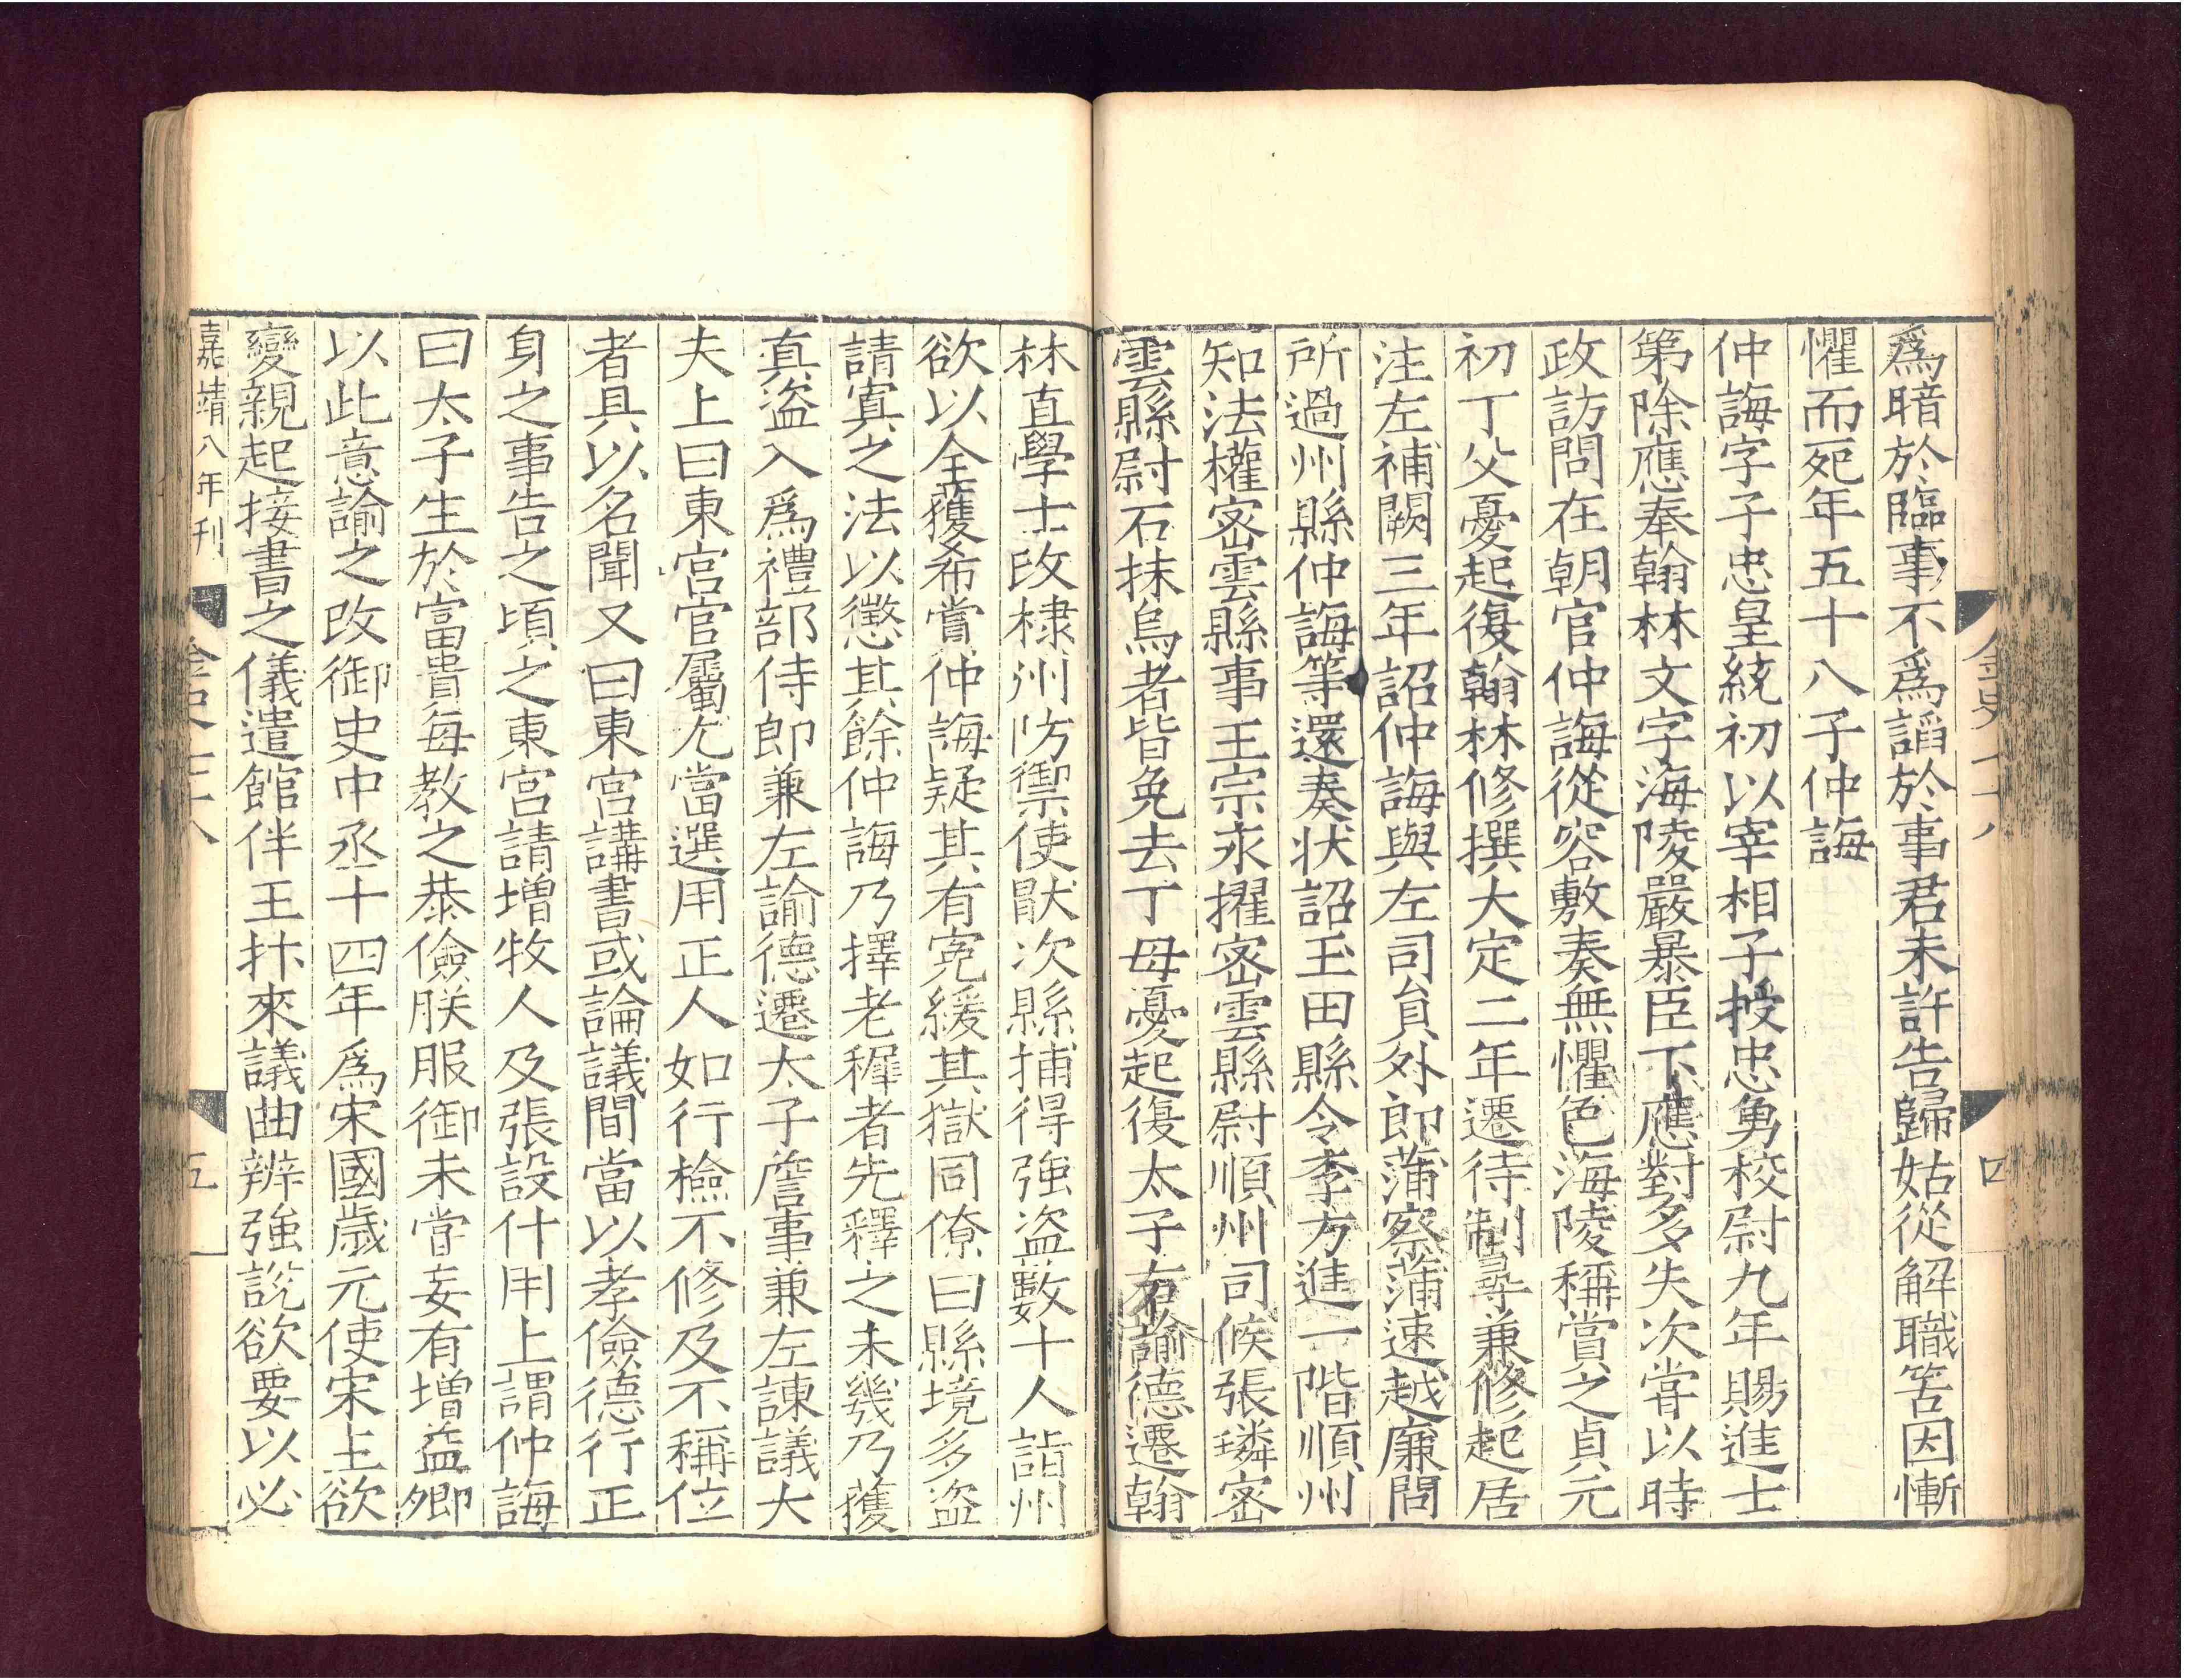 爲暗於臨事不爲謟於事君未許告歸姑從解職筈因慚
懼而死年五十八子仲誨
仲誨字子忠皇統初以宰相子授忠勇校尉九年賜進士
第除應奉翰林文字海陵嚴暴臣下應對多失次甞以時
政訪問在朝官仲誨從容敷奏無懼色海陵稱賞之貞元
初丁父憂起復翰林修撰大定二年遷待制尋兼修起居
注左補闕三年詔仲誨與左司員外郎蒲察蒲速越廉問
所過州縣仲誨等還奏狀詔玉田縣令李方進一階順州
知法權密雲縣事王宗永擢密雲縣尉順州司候張璘密
雲縣尉石抹烏者皆免去丁母憂起復太子右諭德遷翰
金史七十八
四
林直學士改棣州防禦使猒次縣捕得強盗數十人詣州
欲以全獲希賞仲誨疑其有冤緩其獄同僚曰縣境多盗
請寘之法以懲其餘仲誨乃擇老穉者先釋之未幾乃獲
真盗入爲禮部侍郎兼左諭德遷太子詹事兼左諫議大
夫上曰東宮官屬尤當選用正人如行檢不修及不稱位
者具以名聞又曰東宮講書或論議間當以孝儉德行正
身之事告之頃之東宮請增牧人及張設什用上謂仲誨
曰太子生於富貴每教之恭儉朕服御未甞妄有增益卿
以此意諭之改御史中丞十四年爲宋國歲元使宋主欲
變親起接書之儀遣館伴王抃來議曲辨強說欲要以必
嘉靖八年刊
金史七十八
五